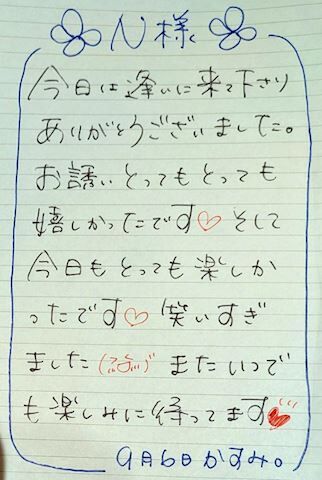 N様
今日は逢いに来て下さり
ありがとうございました。
お誘いとってもとっても
嬉しかったです♡ そして
今日もとっても楽しか
ったです♡ 笑いすぎ
ました またいつで
も楽しみに待ってます♥
9月6日かすみ。